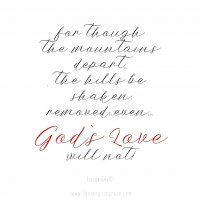 for though
the mountains
depart,
the hills be
shaken,
removed even...
God's Love
will not!